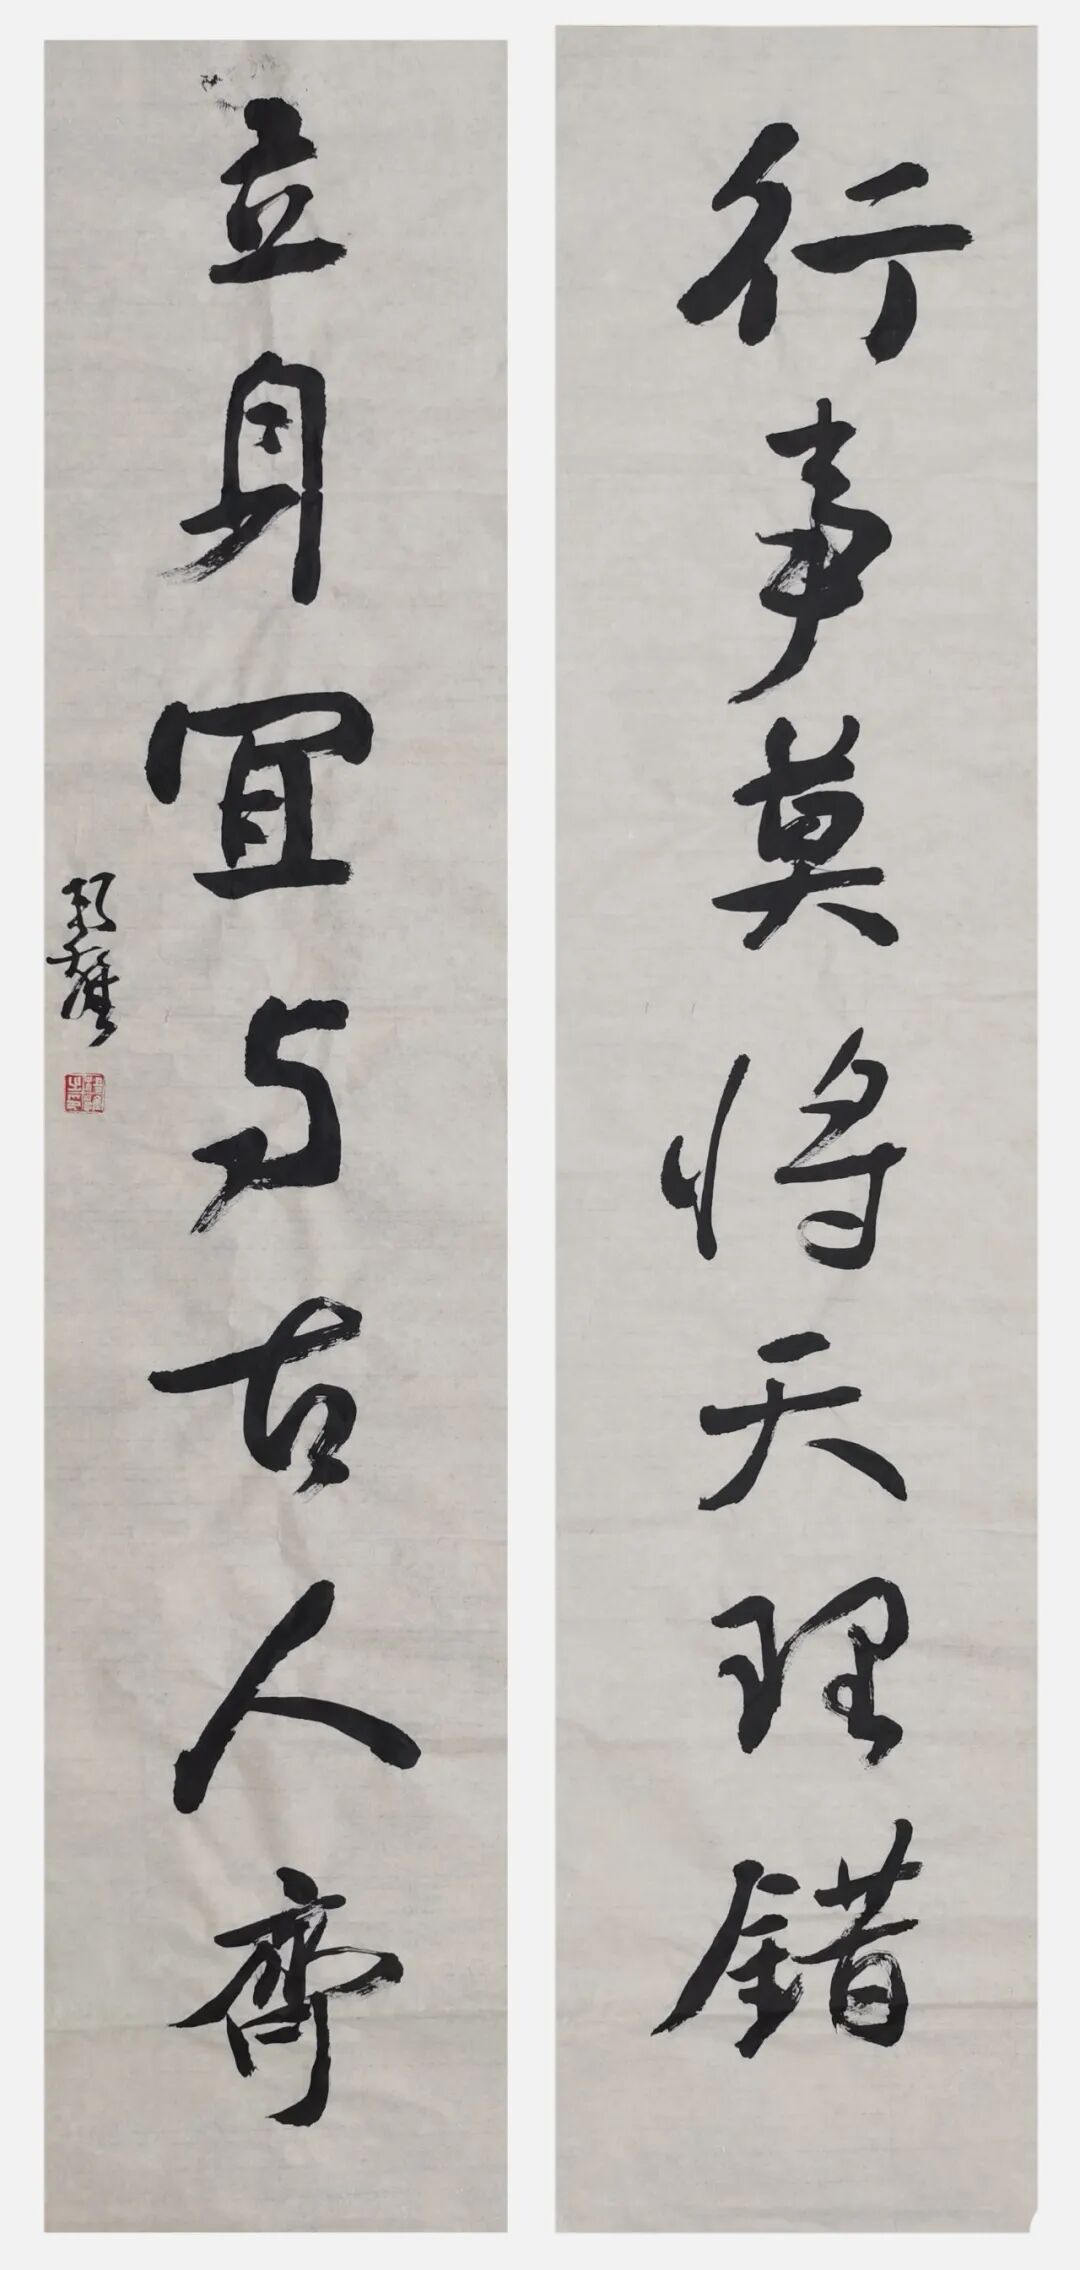 行事莫将天理错
立身宜与古人齐